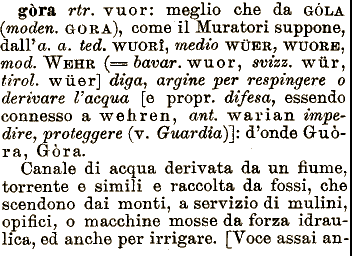 gòra rtr. vuor: meglio che da GÓLA
(moden. GORA), come il Muratori suppone,
dall'a. a. ted. WUORÎ, medio WÜER, WUORE,
mod. WEHR (= bavar. wuor, svizz. wür,
tirol. wüer] diga, argine per respingere o
derivare l'acqua [e propr. difesa, essendo
connesso a wehren, ant. warian impe-
dire, proteggere (v. Guardia)]: d'onde Guò-
ra, Gòra.
Canale di acqua derivata da un fiume,
torrente e simili e raccolta da fossi, che
scendono dai monti, a servizio di mulini,
opifici, o macchine mosse da forza idrau-
lica, ed anche per irrigare. [Voce assai an-